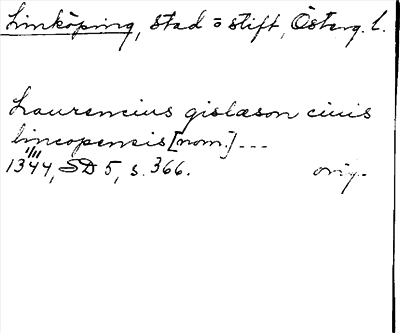 Linköping, stad o stift, Österg. l.
Laurencius gislæson ciuis
lincopensis [nom.] ---
1344 1/11, SD 5, s. 366. orig.